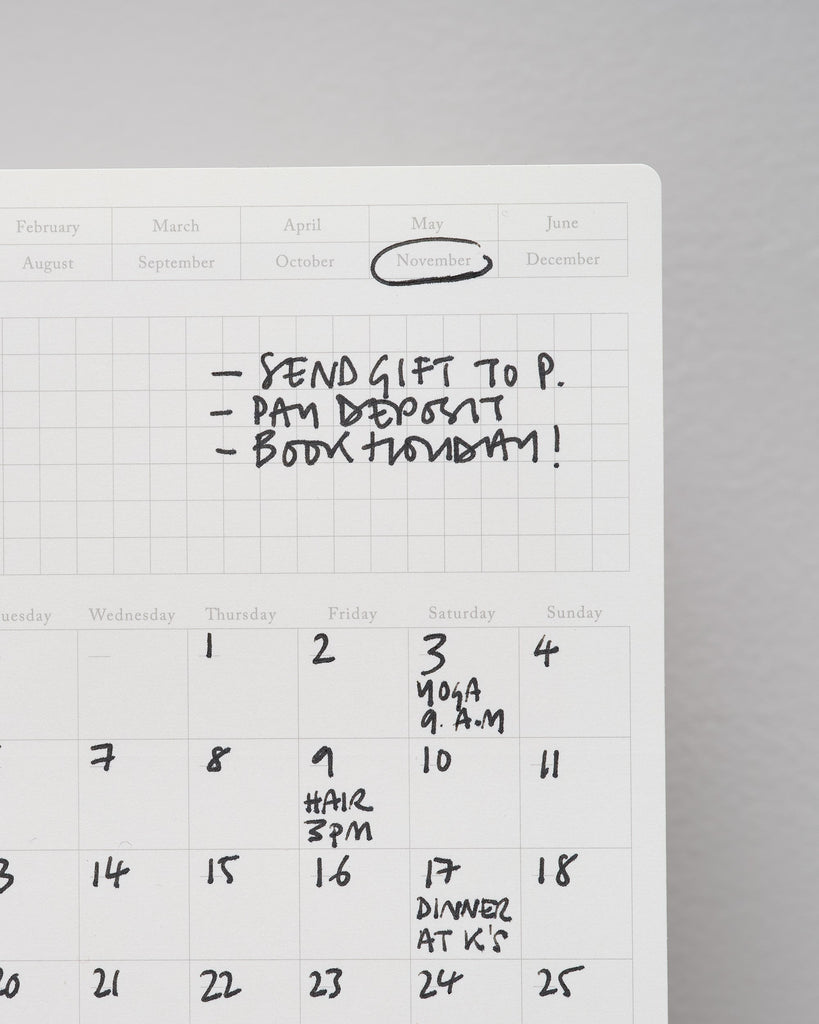 February March April May June
August September October November December
- SEND GIFT TO P.
- PAY DEPOSIT
- BOOK HOLIDAY!
Wednesday Thursday Friday Saturday Sunday
1 2 3 4
YOGA
9. A.M
7 8 9 10 11
HAIR
3PM
14 15 16 17 18
DINNER
AT K'S
20 21 22 23 24 25